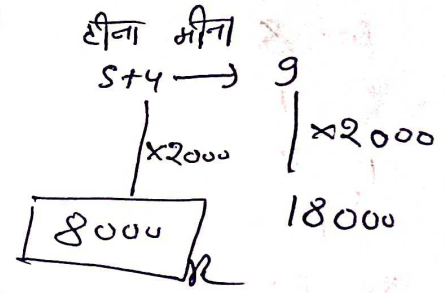 हीना मीना
5+4 → 9
×2000 ×2000
8000 18000